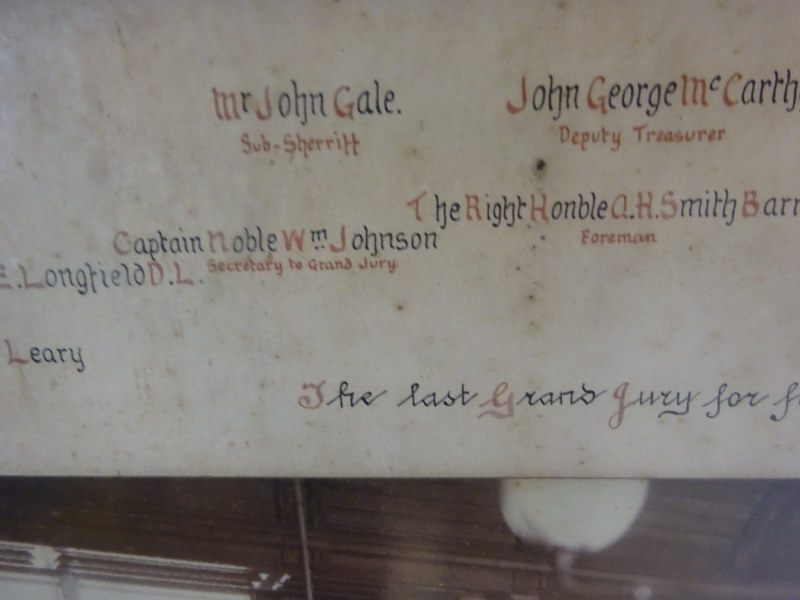 Mr John Gale.
Sub-Sherriff
John George McCarth
Deputy Treasurer
The Right Honble A.H. Smith Barr
Foreman
Captain Noble Wm Johnson
Secretary to Grand Jury.
E. Longfield D.L.
Leary
The last Grand Jury for